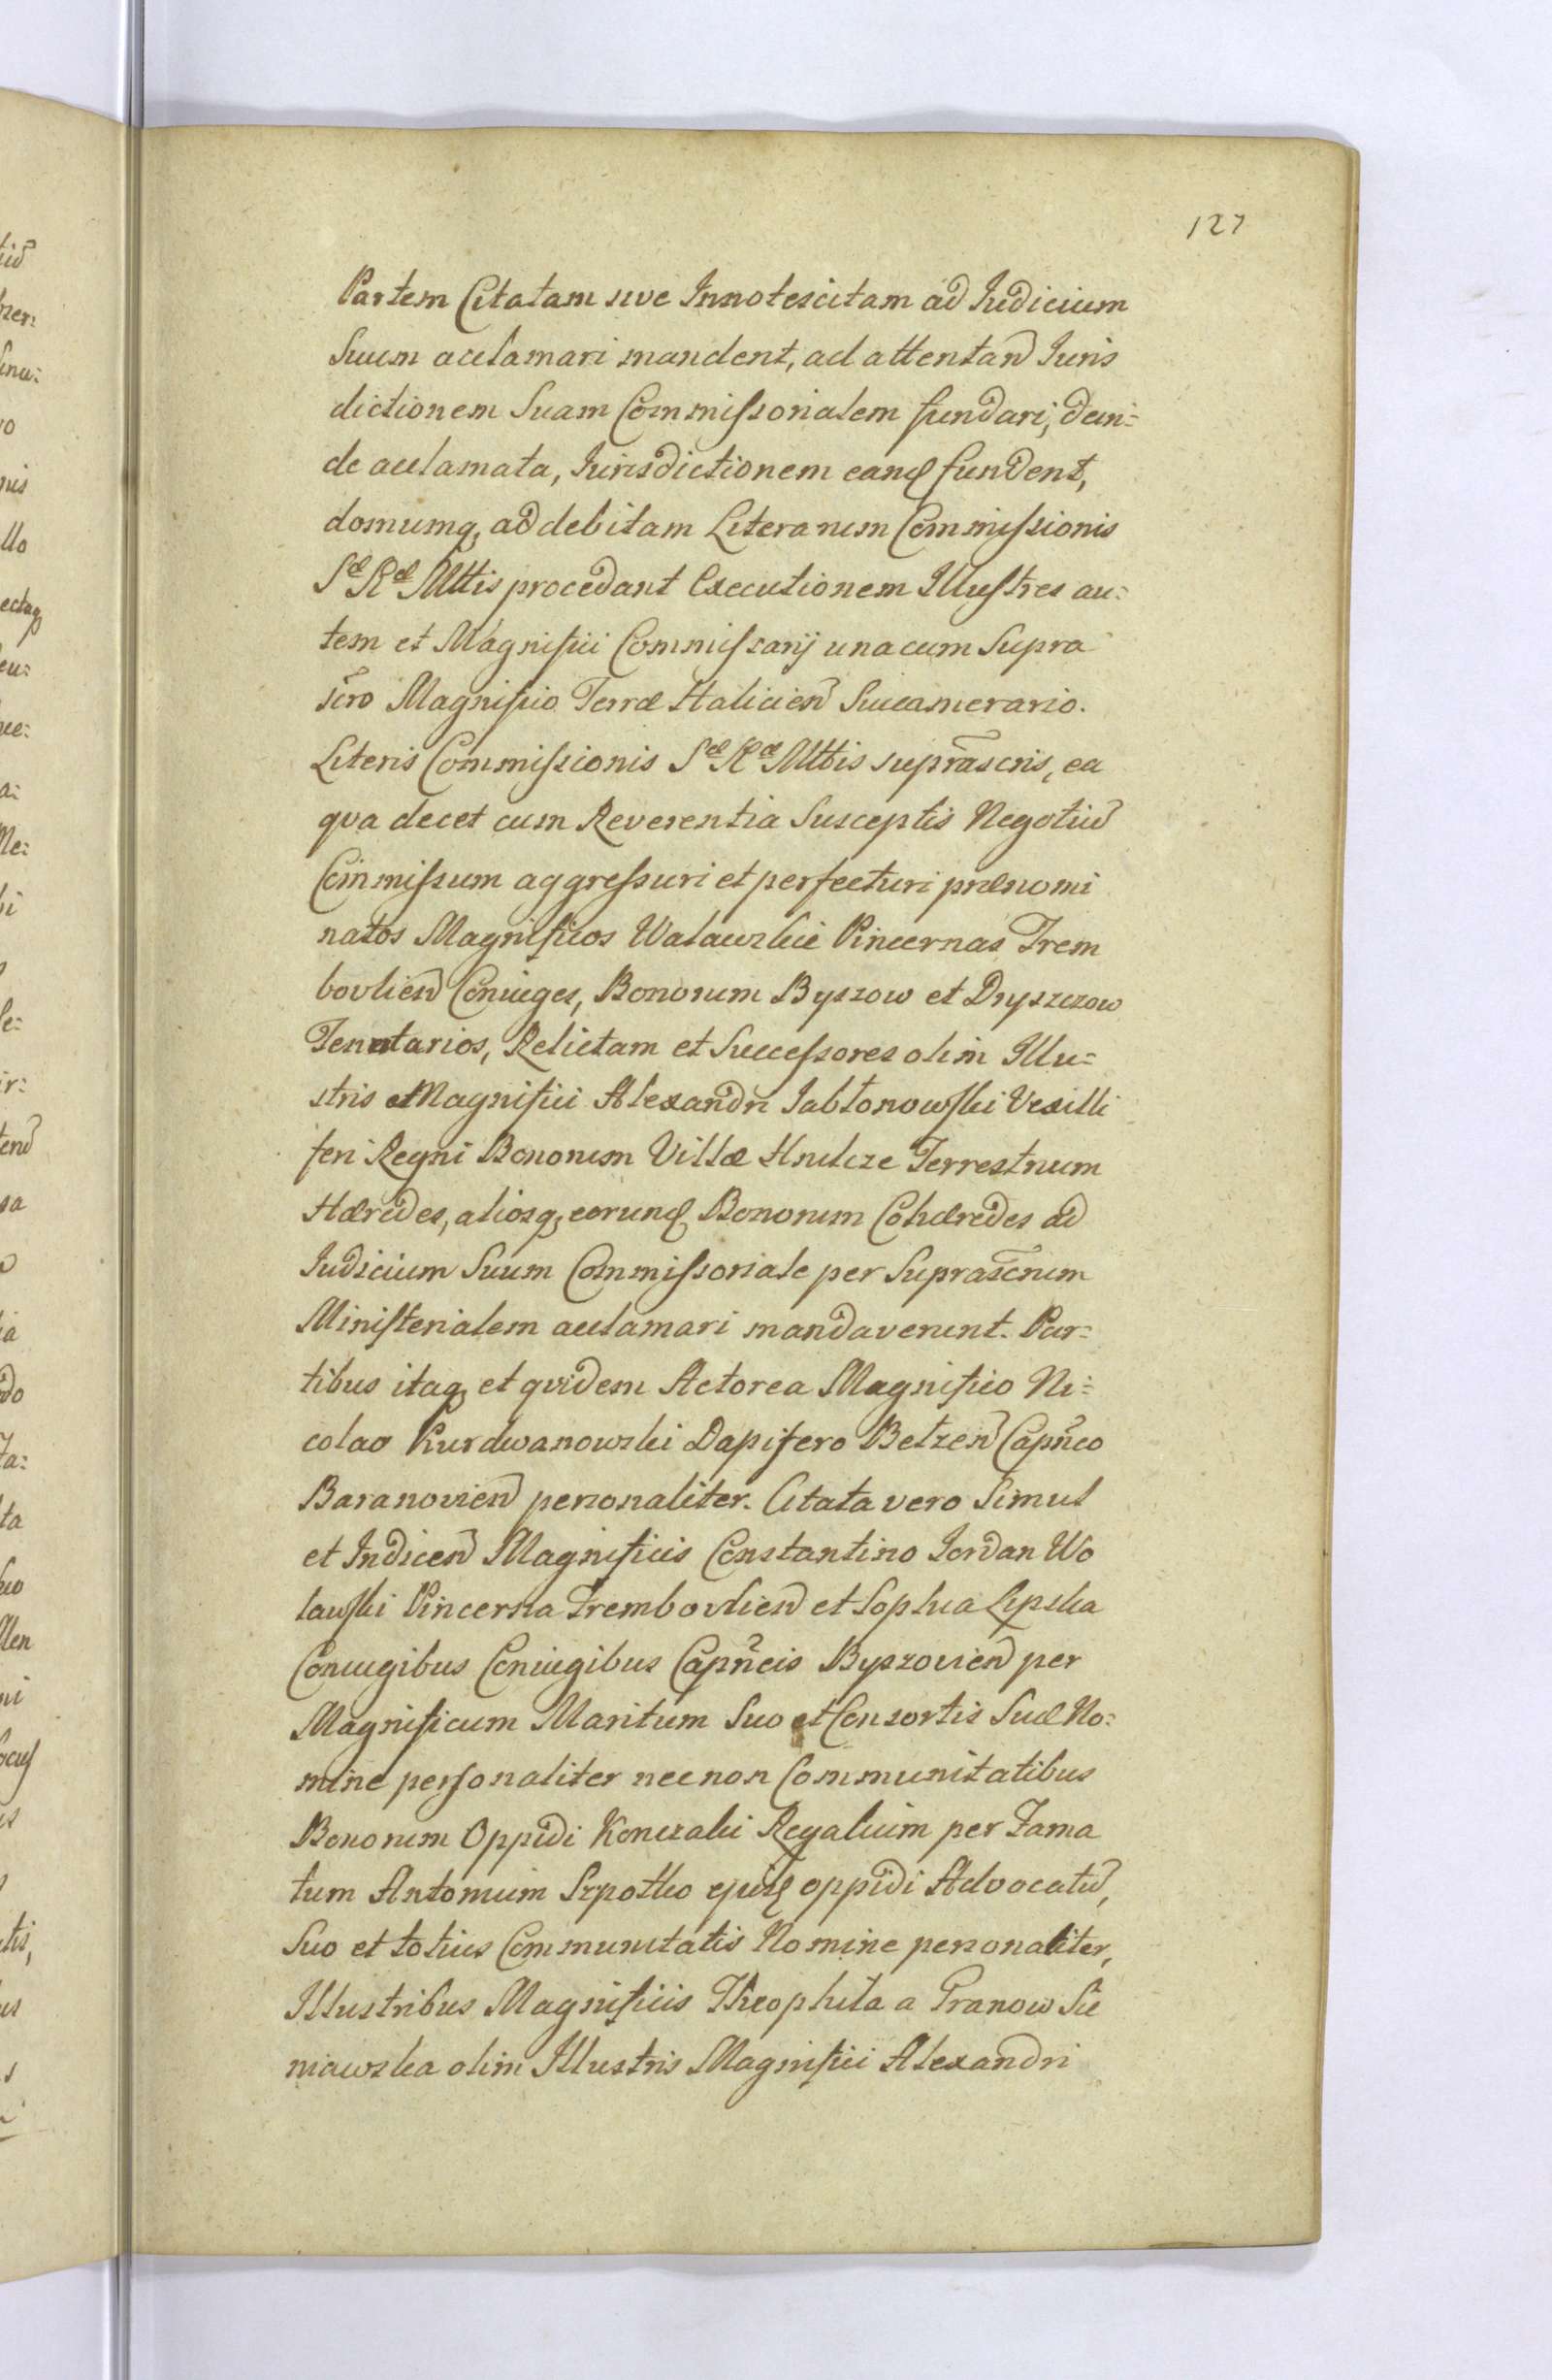 127
Partem Citatam sive Innotescitam ad Iudicium
Suum acclamari mandent, ad attentan͠d Iuris
dictionem Suam Commissorialem fundari, dein=
de acclamata, Iurisdictionem eand fundent,
domumq, ad debitam Literarum Commissionis
Sæ Ræ Mttis procedant Executionem Illustres au=
tem et Magnifici Commissarij una cum Supra
scro Magnifico Terræ Halicien͠ Succamerario.
Literis Commissionis Sæ Ræ Mttis suprascris, ea
qva decet cum Reverentia Susceptis Negotiu͠
Commissum aggressuri et perfecturi prænomi
natos Magnificos Walawskie Pincernas Trem
bovlien͠ Coniuges, Bonorum Byszow et Dryszczow
Tenutarios, Relictam et Successores olim Illu=
stris et Magnifici Alexandri Jabłonowski Vexilli
feri Regni Bonorum Villæ Hnilcze Terrestrium
Hæredes, aliosq, eorund Bonorum Cohæredes ad
Iudicium Suum Commissoriale per Suprascrum
Ministerialem acclamari mandaverunt. Par=
tibus itaq, et qvidem Actorea Magnifico Ni=
colao Kurdwanowski Dapifero Betzen͠ Capn͠eo
Baranovien͠ personaliter. Citata vero Simul
et Indicen͠ Magnificis Constantino Jordan Wo
lawski Pincerna Trembovlien͠ et Sophia Lipska
Coniugibus Coniugibus Capn͠eis Byszovien͠ per
Magnificum Maritum Suo et Consortis Suæ No=
mine personaliter nec non Communitatibus
Bonorum Oppidi Konczaki Regalium per Fama
tum Antonium Szpotko ejusd oppidi Advocatu͠,
Suo et totius Communitatis Nomine personaliter,
Illustribus Magnificis Theophila a Granow Sie
niawska olim Illustris Magnifici Alexandri